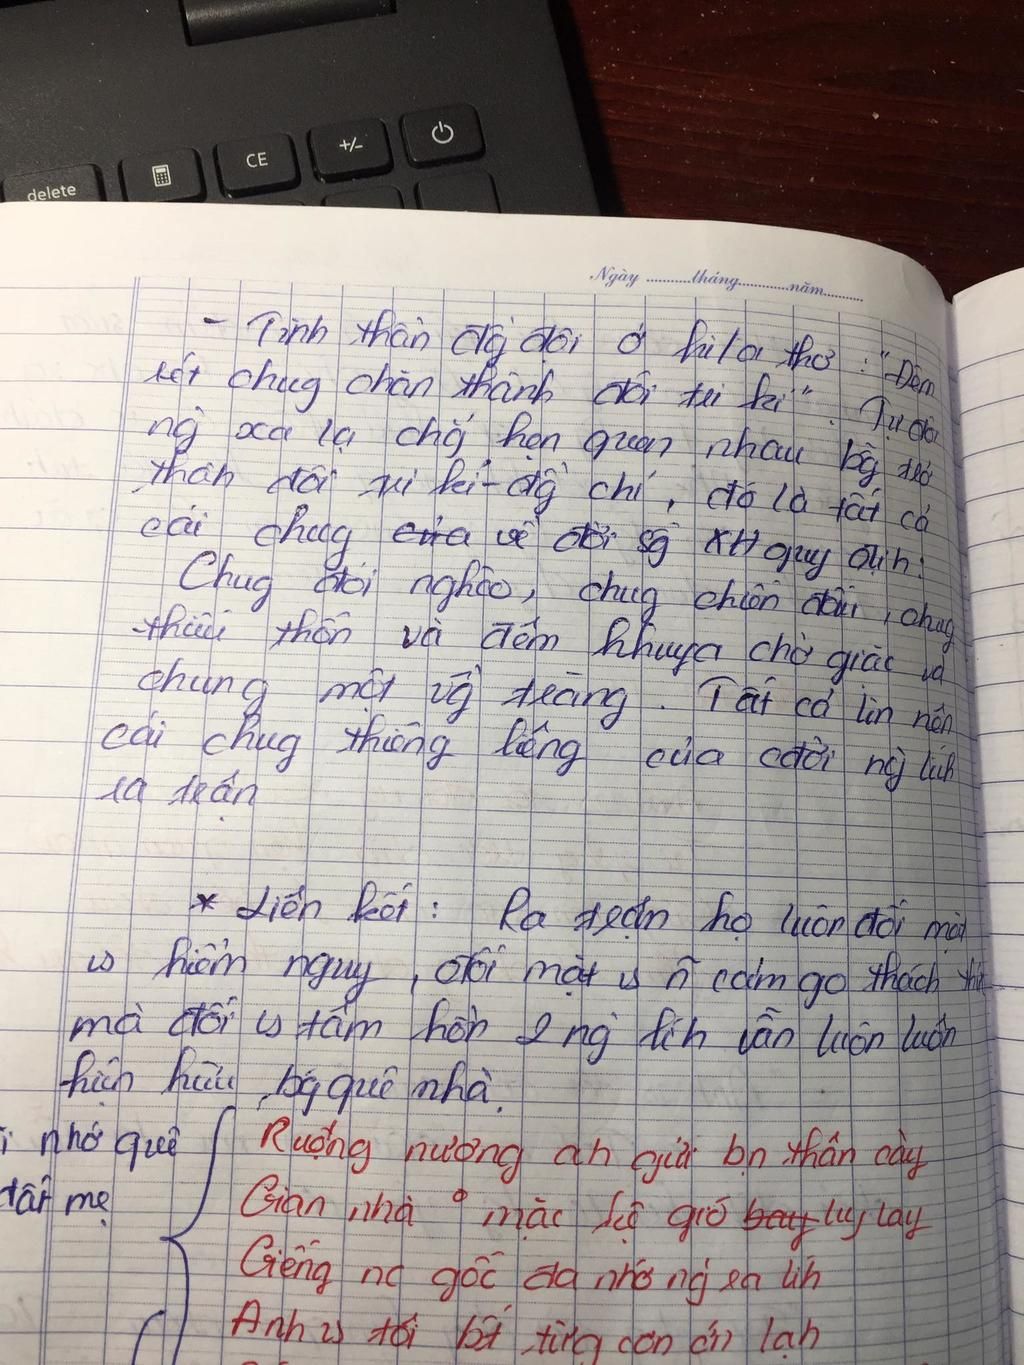 delete
CE
+/-
Ngày ..........tháng............năm..........
- Tình thần đg đội ở kila thơ : "Đêm
rét chug chăn thành đôi tri kỉ". Tự đôi
ng xa lạ chẳg hẹn quen nhau bg trở
thàh đôi tri kỉ - đg chí, đó là tất cả
cái chug của về đời sg XH quy địh:
Chug đói nghèo, chug chiến đấu, chug
thiếu thốn và đêm khuya chờ giặc và
chung một vg trăng. Tất cả lm nên
cái chug thiêng liêng của cđời ng líh
ra trận
* Liên kết : Ra trận họ luôn đối mặt
vs hiểm nguy, đối mặt vs n~ cam go thách
mà đối vs tâm hồn 2 ng líh vẫn luôn luôn
hiện hữu bóg quê nhà.
i nhớ quê
đất mẹ
Ruộng nương ah gửi bạn thân cày
Gian nhà ° mặc kệ gió bay lug lay
Giếng nc gốc đa nhớ ng ra líh
Anh vs tôi bt từng cơn ớn lạh